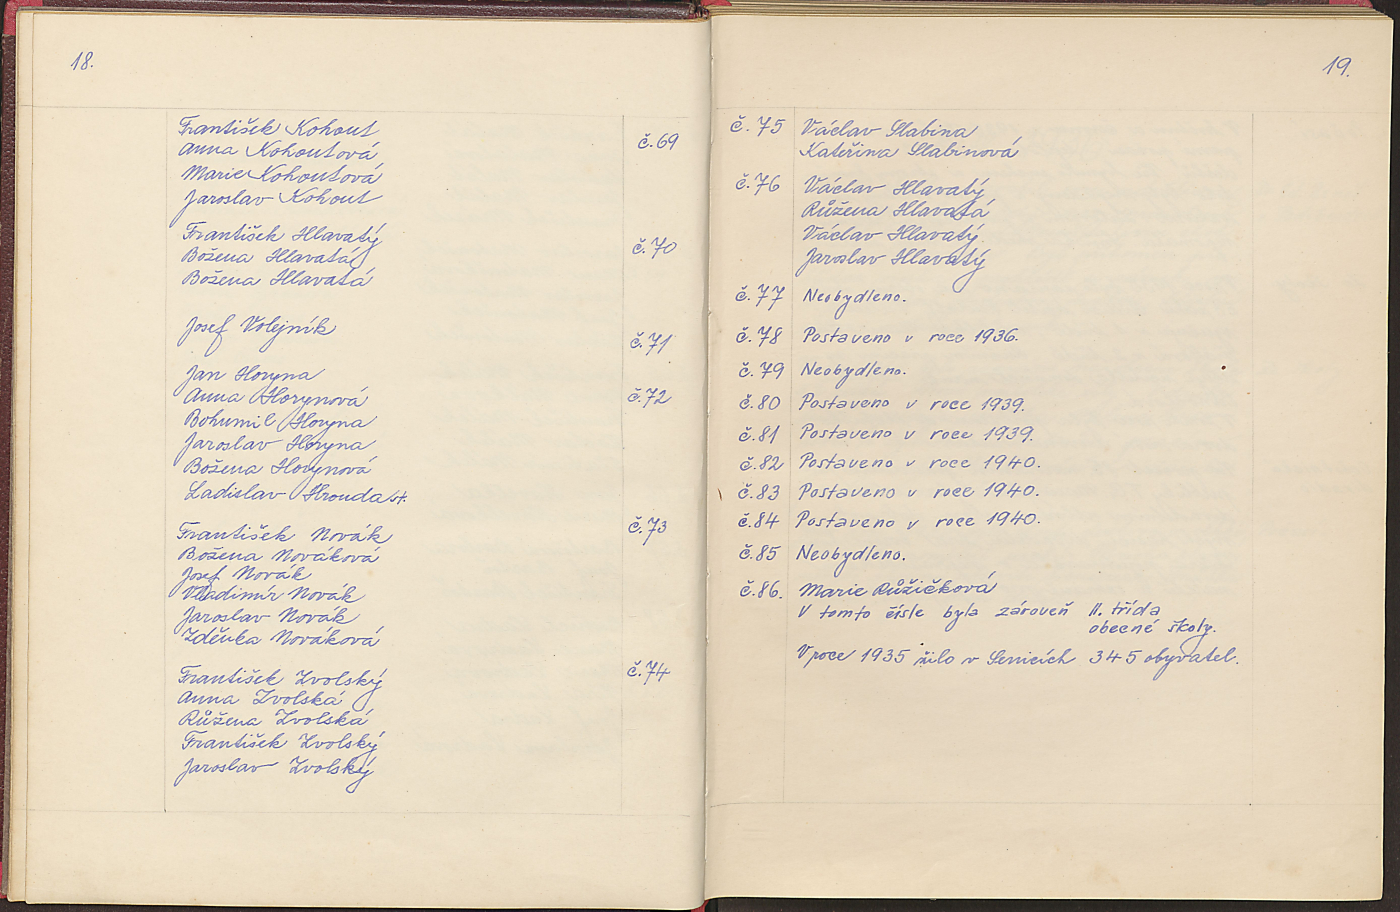 18.
František Kohout
Anna Kohoutová č.69
Marie Kohoutová
Jaroslav Kohout
František Hlavatý
Božena Hlavatá č.70
Božena Hlavatá
Josef Volejník
č.71
Jan Horyna
Anna Horynová č.72
Bohumil Horyna
Jaroslav Horyna
Božena Horynová
Ladislav Hrouda st.
František Novák č.73
Božena Nováková
Josef Novák
Vladimír Novák
Jaroslav Novák
Zdeňka Nováková
František Zvolský č.74
Anna Zvolská
Růžena Zvolská
František Zvolský
Jaroslav Zvolský
19.
č.75 Václav Slabina
Kateřina Slabinová
č.76 Václav Hlavatý
Růžena Hlavatá
Václav Hlavatý
Jaroslav Hlavatý
č.77 Neobydleno.
č.78 Postaveno v roce 1936.
č.79 Neobydleno.
č.80 Postaveno v roce 1939.
č.81 Postaveno v roce 1939.
č.82 Postaveno v roce 1940.
č.83 Postaveno v roce 1940.
č.84 Postaveno v roce 1940.
č.85 Neobydleno.
č.86. Marie Růžičková
V tomto čísle byla zároveň II. třída
obecné školy.
V roce 1935 žilo v Senicích 345 obyvatel.